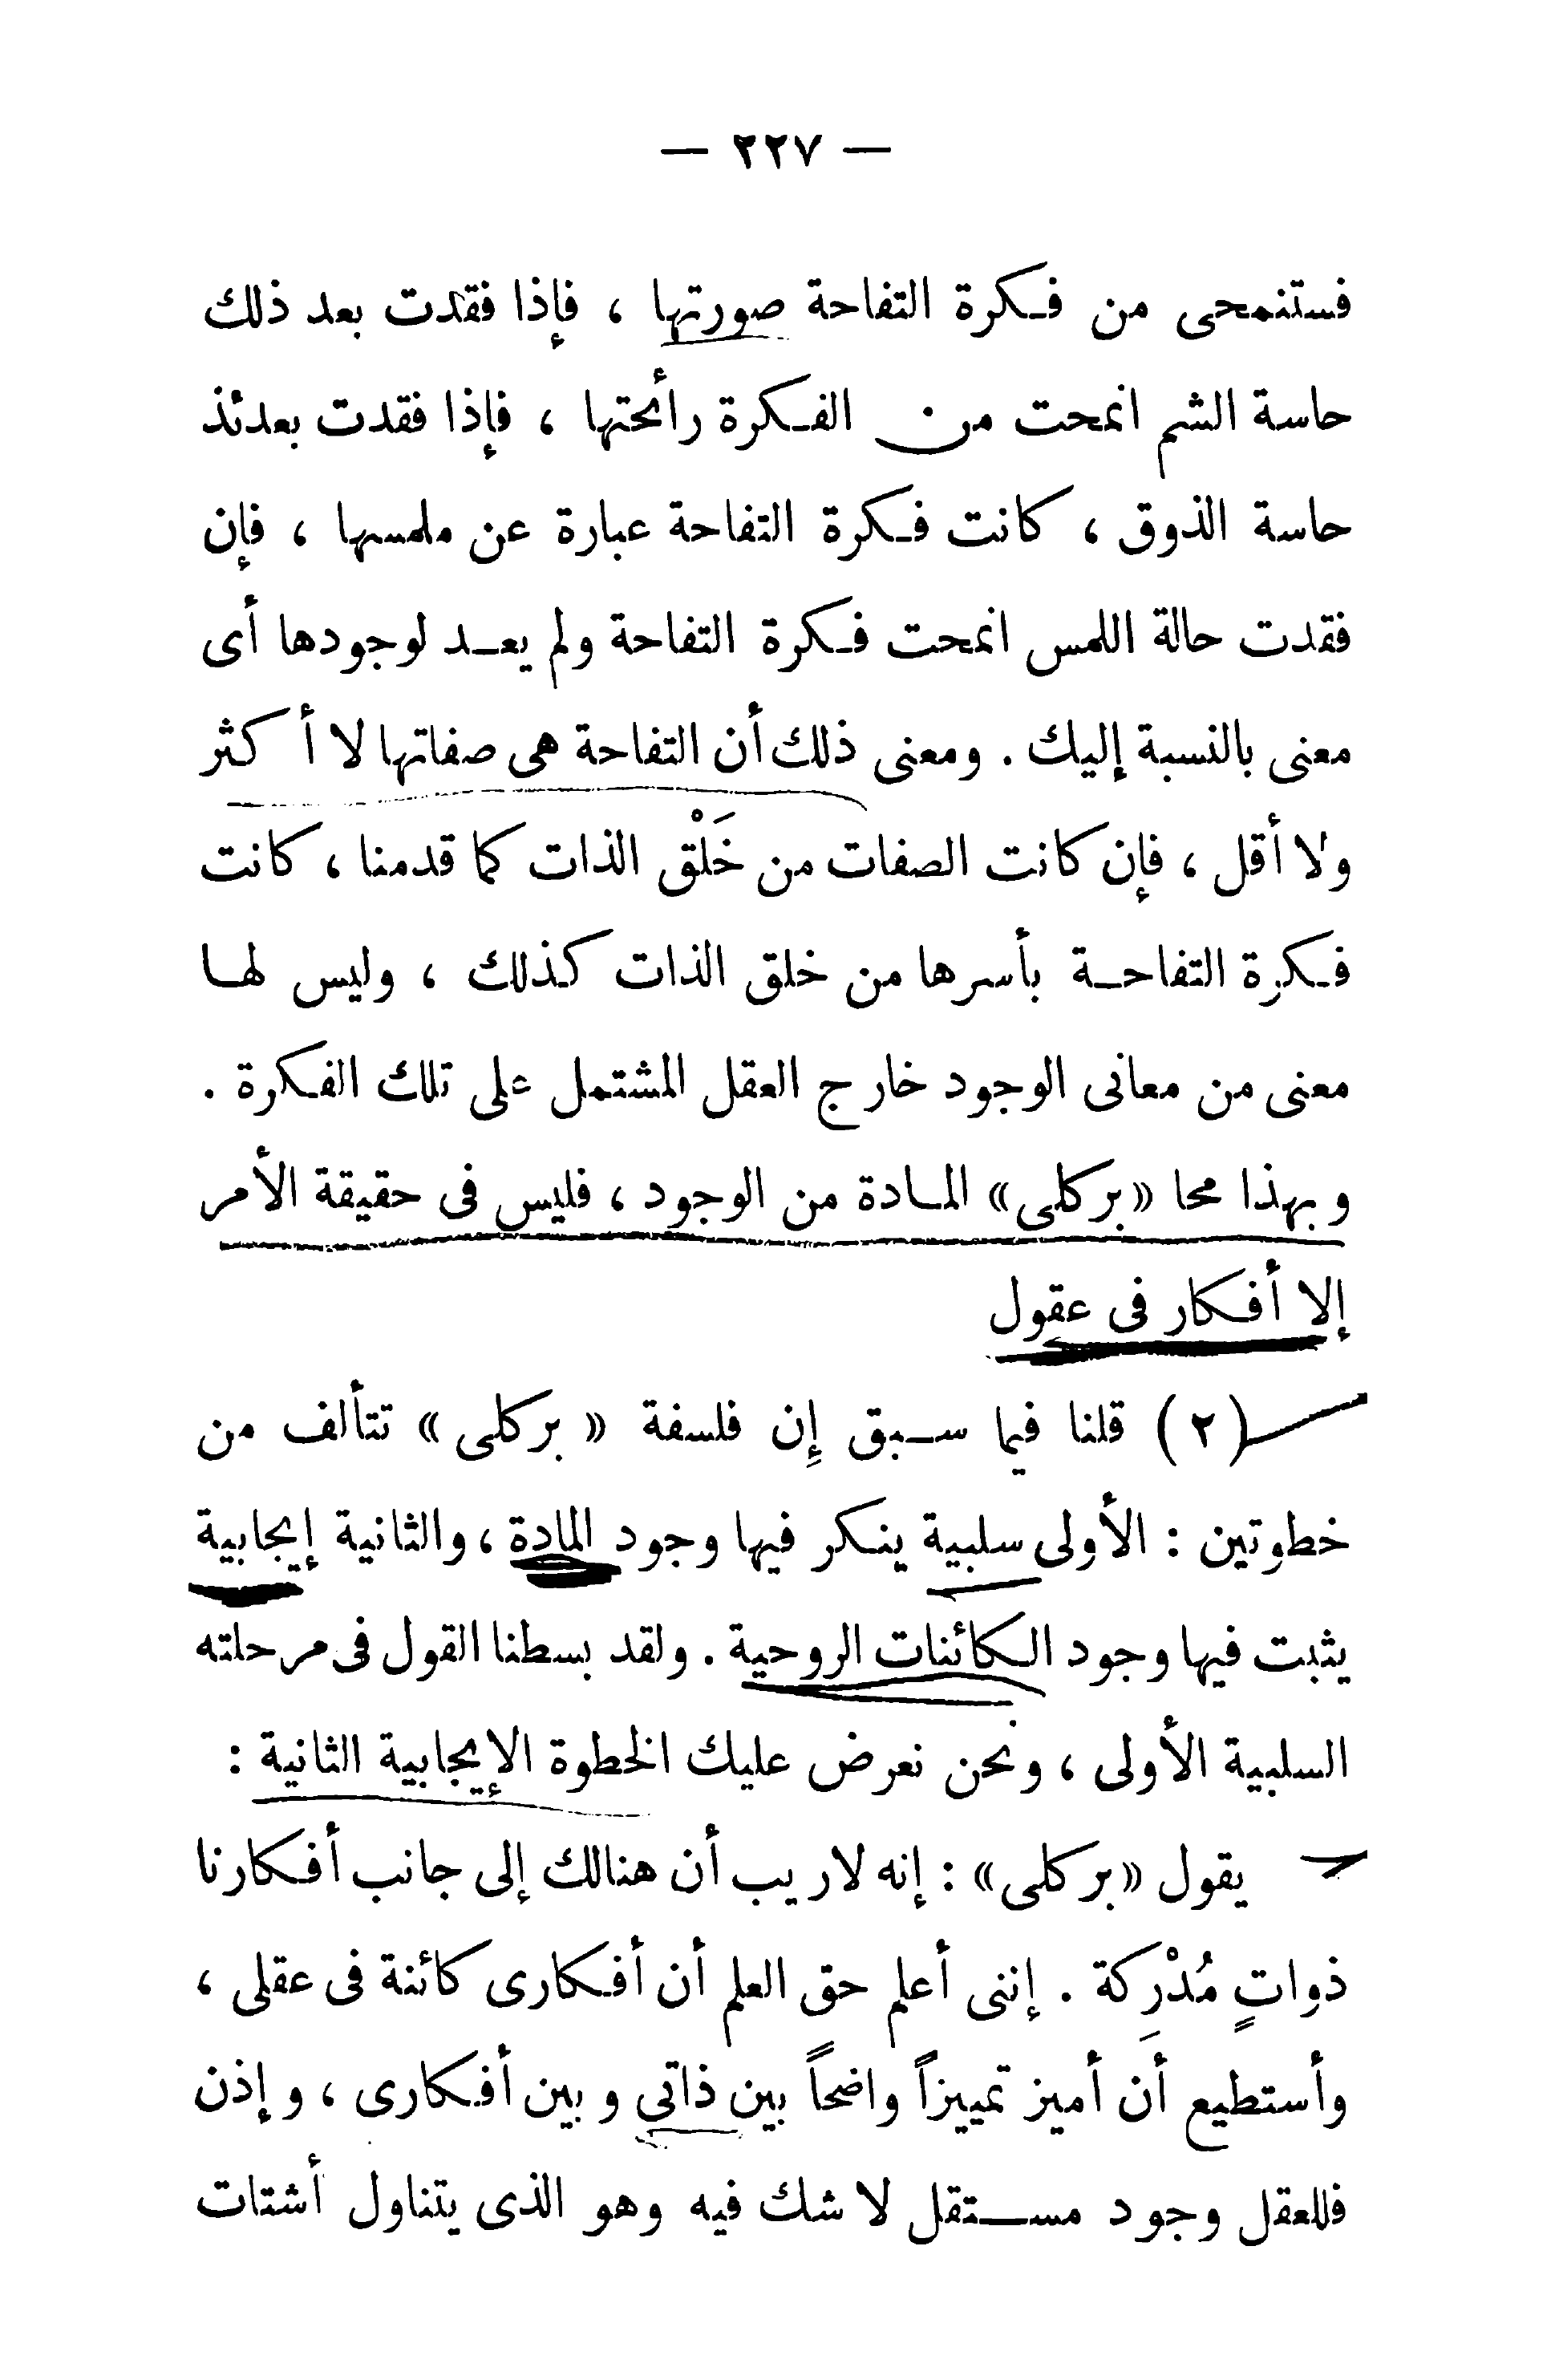 — ٢٢٧ —
فستنمحى من فكرة التفاحة صورتها ، فإذا فقدت بعد ذلك
حاسة الشم انمحت من الفكرة رائحتها ، فإذا فقدت بعدئذ
حاسة الذوق ، كانت فكرة التفاحة عبارة عن ملمسها ، فإن
فقدت حالة اللمس انمحت فكرة التفاحة ولم يعد لوجودها أى
معنى بالنسبة إليك . ومعنى ذلك أن التفاحة هى صفاتها لا أكثر
ولا أقل ، فإن كانت الصفات من خَلْق الذات كما قدمنا ، كانت
فكرة التفاحة بأسرها من خلق الذات كذلك ، وليس لها
معنى من معانى الوجود خارج العقل المشتمل على تلك الفكرة .
وبهذا محا «بركلى» المادة من الوجود ، فليس فى حقيقة الأمر
إلا أفكار فى عقول
(٢) قلنا فيما سبق إِن فلسفة « بركلى » تتألف من
خطوتين : الأولى سلبية ينكر فيها وجود المادة ، والثانية إيجابية
يثبت فيها وجود الكائنات الروحية . ولقد بسطنا القول فى مرحلته
السلبية الأولى ، ونحن نعرض عليك الخطوة الإيجابية الثانية :
يقول «بركلى» : إنه لاريب أن هنالك إلى جانب أفكارنا
ذواتٍ مُدْرِكة . إننى أعلم حق العلم أن أفكارى كائنة فى عقلى ،
وأستطيع أَن أميز تمييزاً واضحاً بين ذاتى وبين أفكارى ، وإذن
فللعقل وجود مستقل لا شك فيه وهو الذى يتناول أشتات